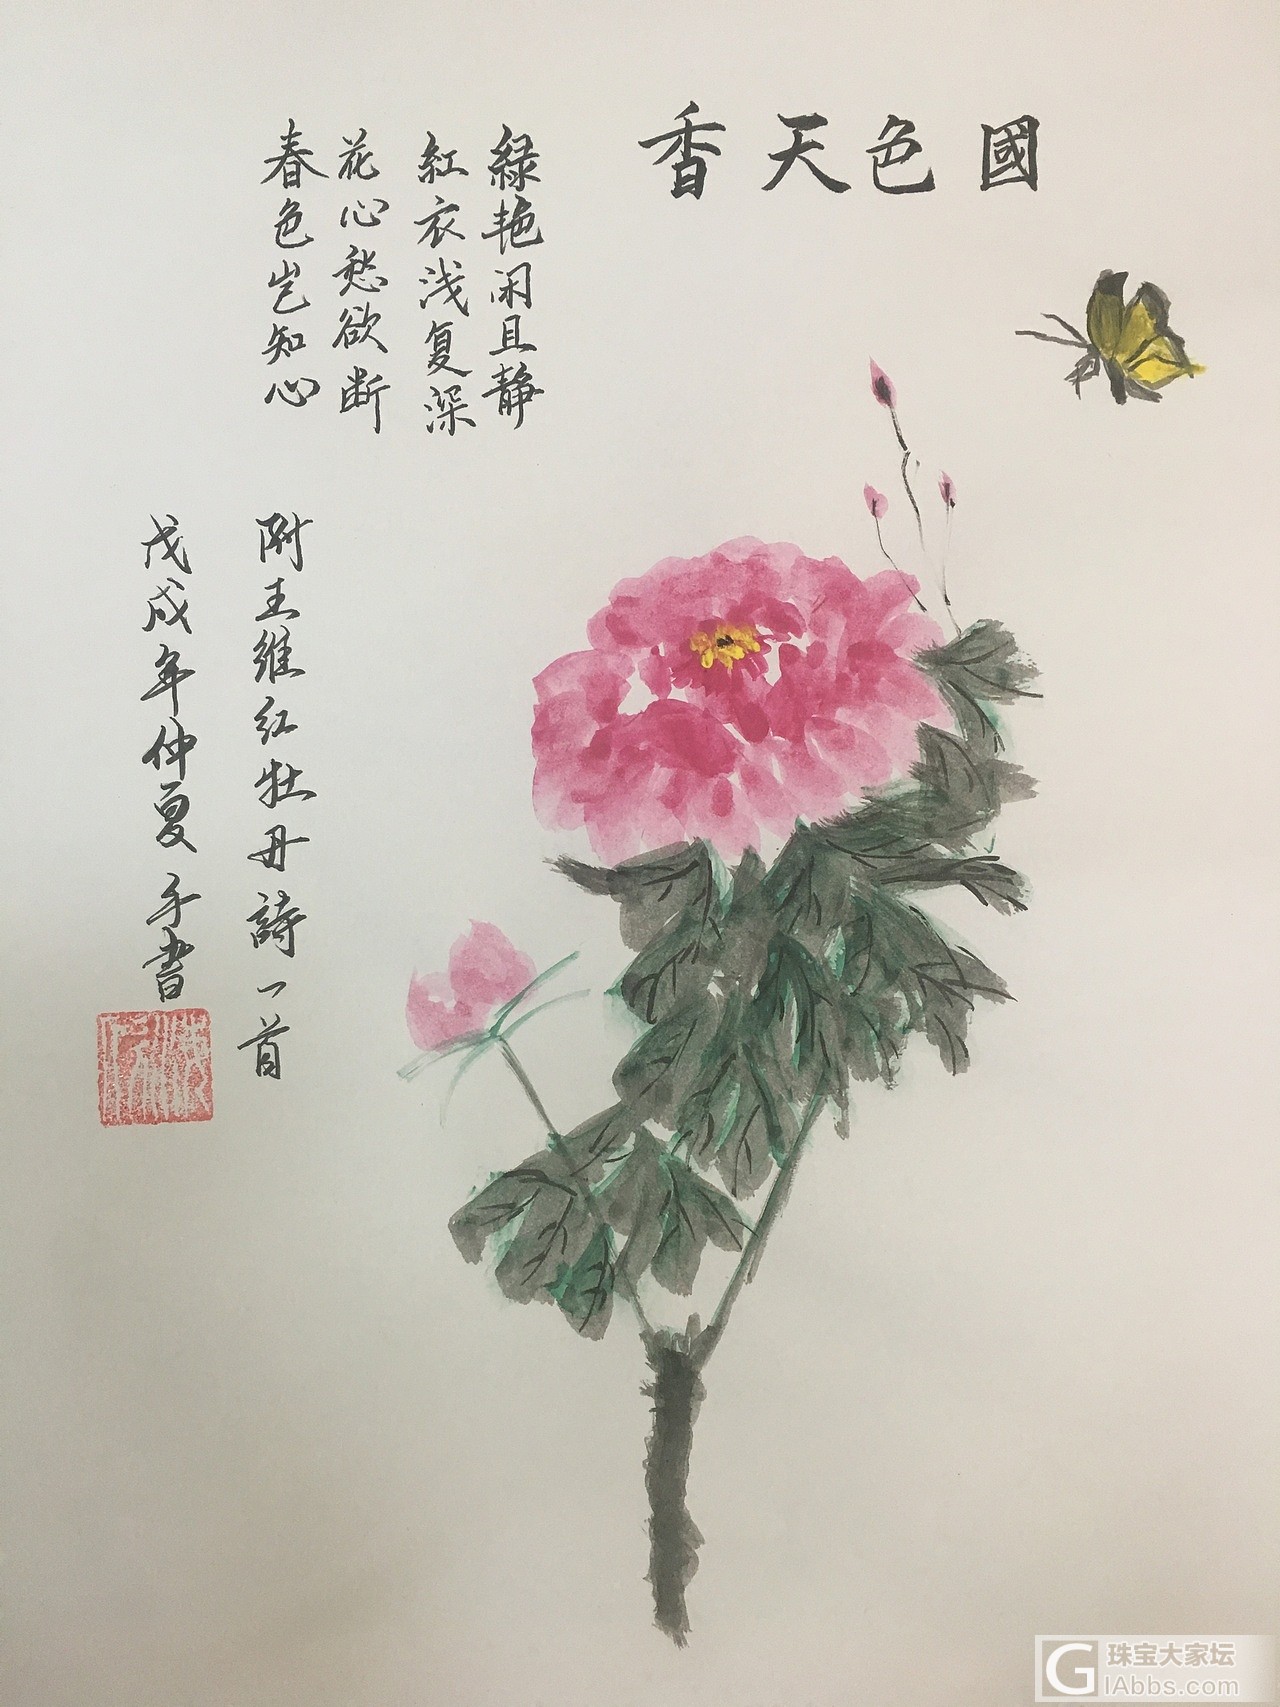 國色天香
綠艳闲且靜
紅衣浅复深
花心愁欲断
春色岂知心
附王维红牡丹詩一首
戊戌年仲夏手書
珠宝大家坛
GIAbbs.com